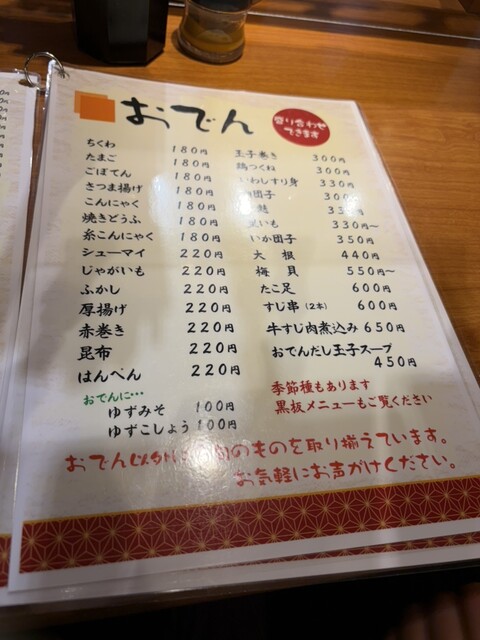 おでん
盛り合わせ
できます
ちくわ 180円
たまご 180円
ごぼてん 180円
さつま揚げ 180円
こんにゃく 180円
焼きどうふ 180円
糸こんにゃく 180円
シューマイ 220円
じゃがいも 220円
ふかし 220円
厚揚げ 220円
赤巻き 220円
昆布 220円
はんぺん 220円
おでんに…
ゆずみそ 100円
ゆずこしょう 100円
玉子巻き 300円
鶏つくね 300円
いわしすり身 330円
団子 300円
330円
いも 330円～
いか団子 350円
大根 440円
梅貝 550円～
たこ足 600円
すじ串(2本) 600円
牛すじ肉煮込み 650円
おでんだし玉子スープ
450円
季節種もあります
黒板メニューもご覧ください
おでん以外に旬のものを取り揃えています。
お気軽にお声がけください。